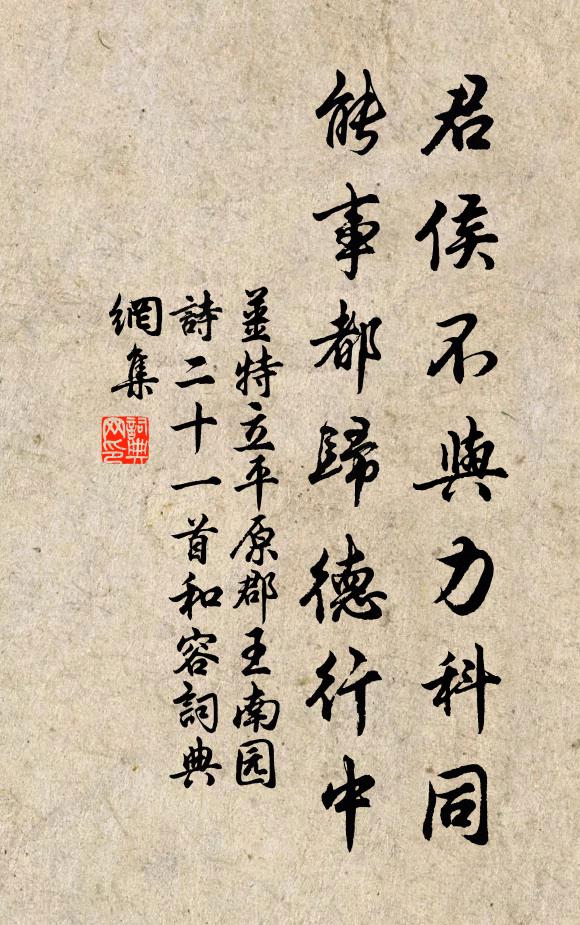 君侯不與力科同
能事都歸德行中
薑特立平原郡王南园
詩二十一首和容詞典
網集
詞典
网印